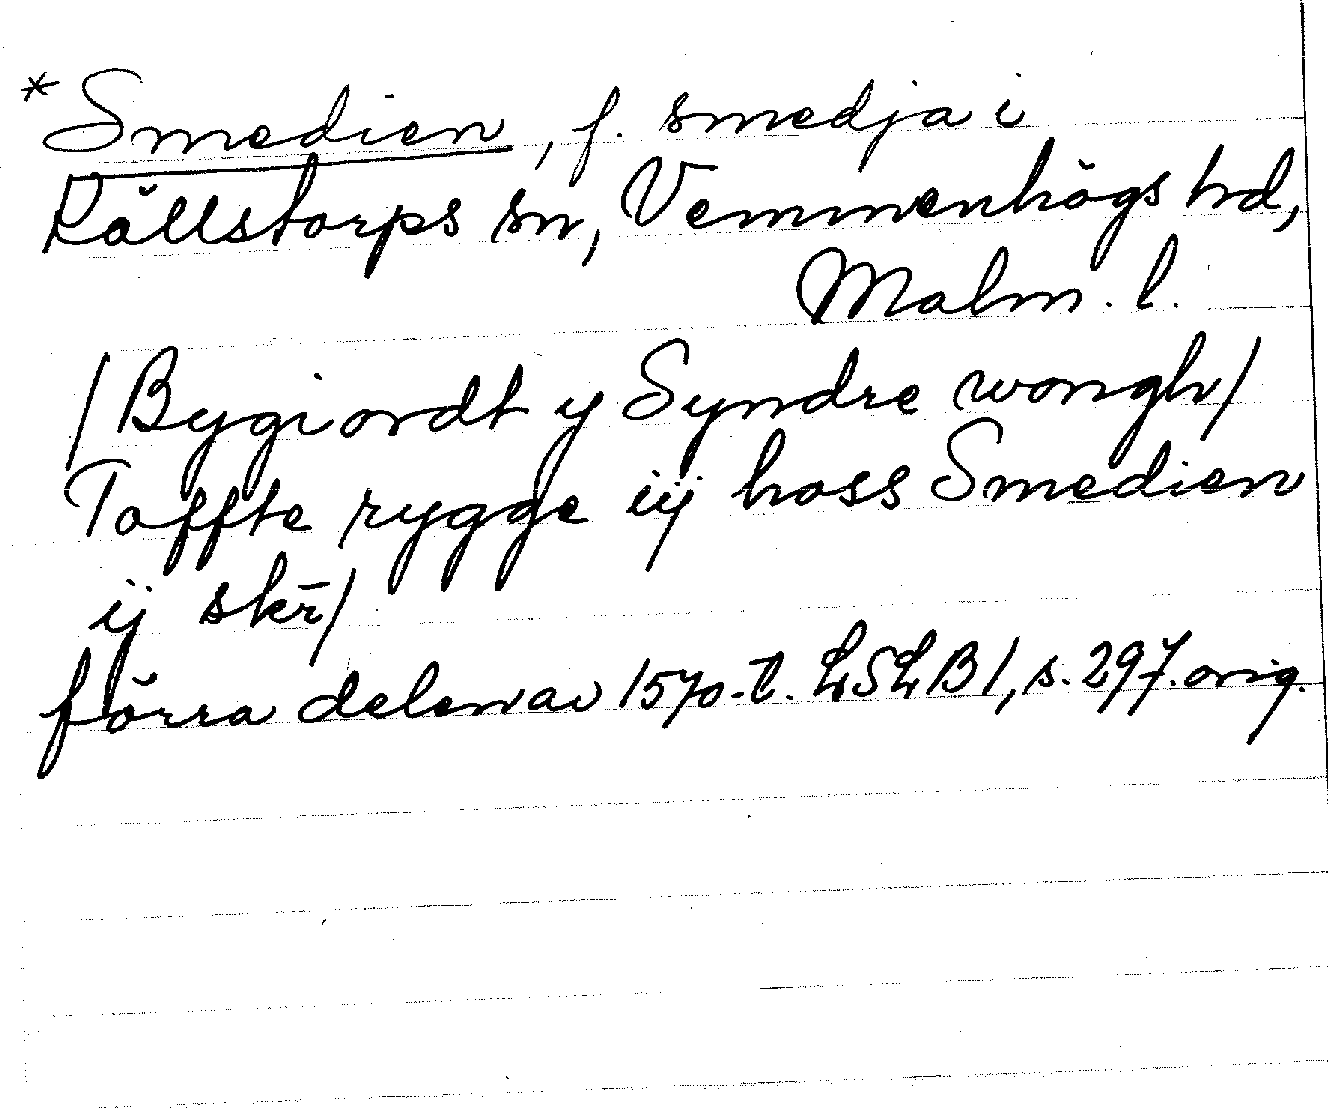 *Smedien, f. smedja i
Källstorps sn, Vemmenhögs hd,
Malm. l.
/Bygiordt y Syndre wongh/
Toffte rygge iij hoss Smedien
ij skr̄/
förra delen av 1570-t. LSLB1, s. 297. orig.